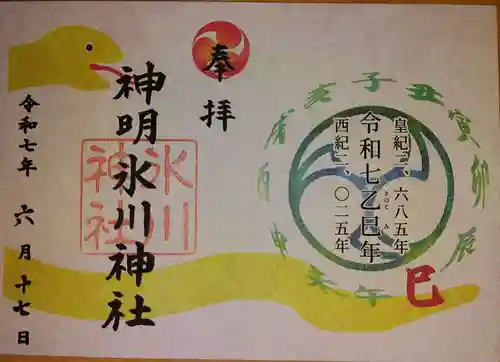 奉拝
神明氷川神社
令和七年 六月十七日
氷川
神社
皇紀二、六八五年
令和七乙巳年
きのと み
西紀二、〇二五年
子
丑
寅
卯
辰
巳
午
未
申
酉
戌
亥